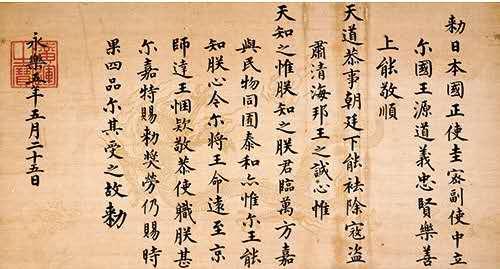 勑日本國正使圭密副使中立
尔國王源道義忠賢樂善
上能敬順
天道恭事朝廷下能祛除寇盗
肅清海邦王之誠心惟
天知之惟朕知之朕君臨萬方嘉
與民物同囿泰和亦惟尔王能
知朕心今尔將王命遠至京
師達王悃欵敬恭使職朕甚
尔嘉特賜勑奬勞仍賜時
果四品尔其受之故勑
永樂五年五月二十五日